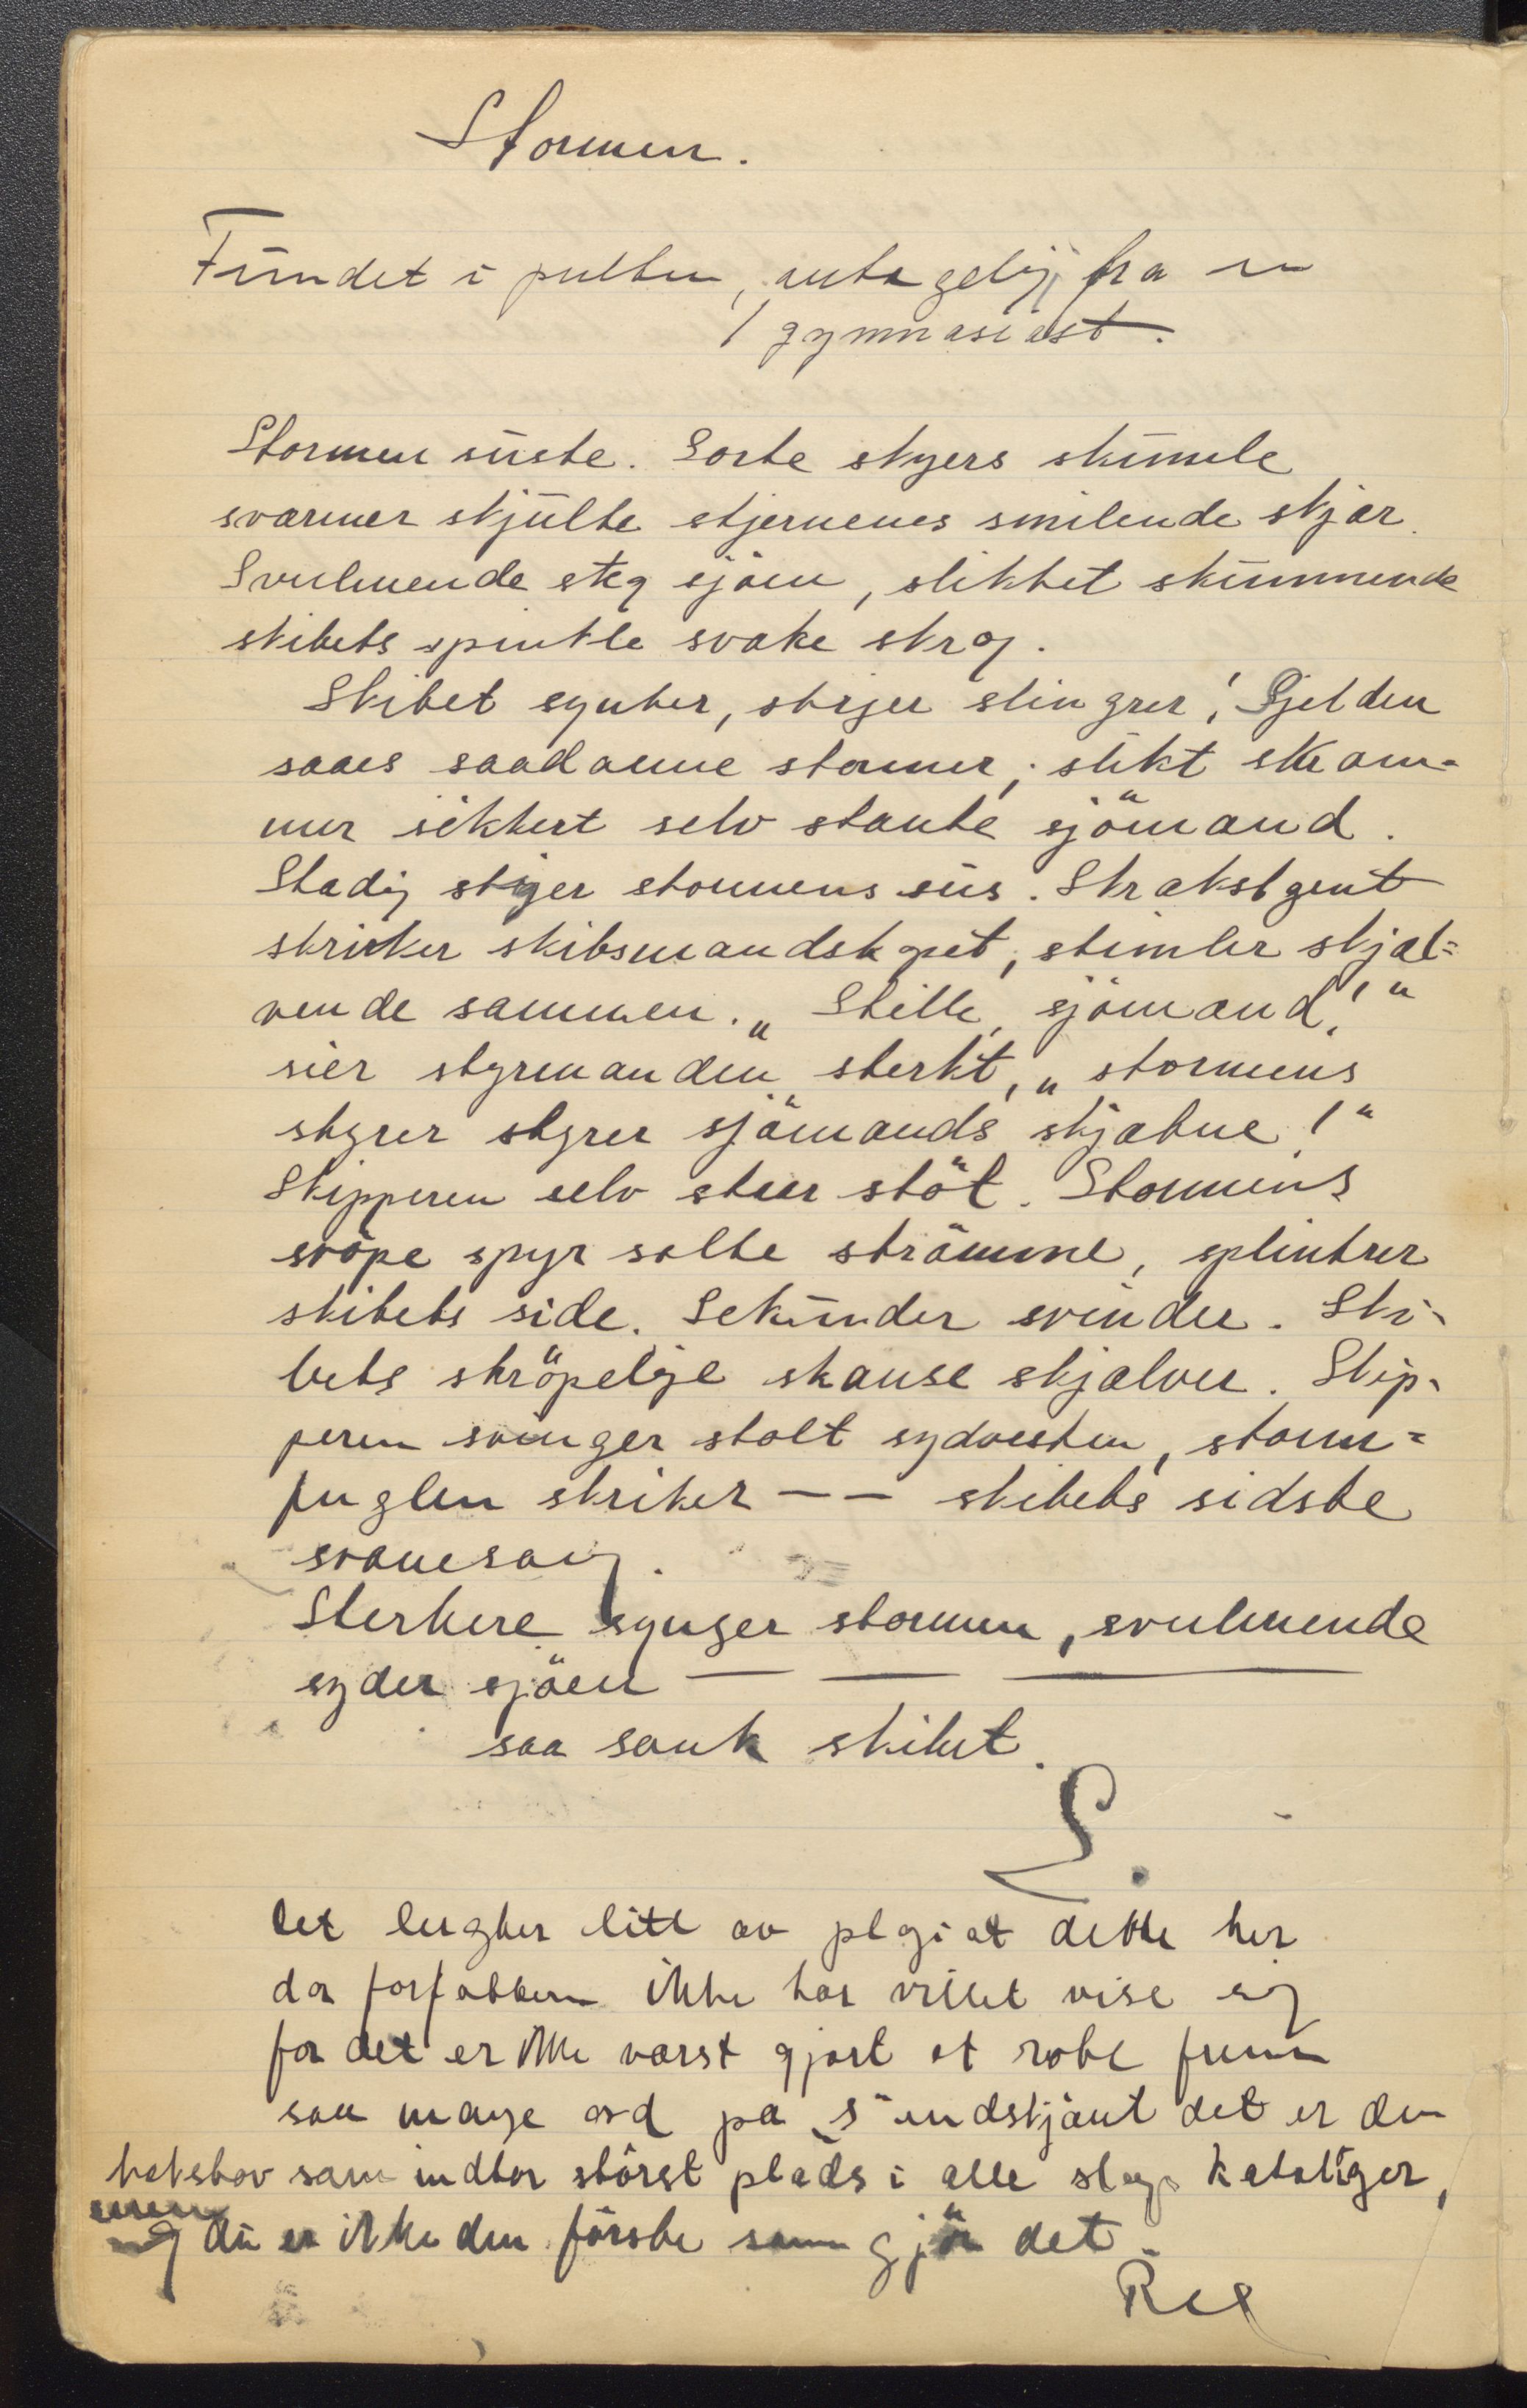 Stormen.
Fundet i pulten, antagelig fra en
I gymnasiast.
Stormen suste. Sorte skyers skumle
svermer skjulte stjernenes smilende skjær.
Svulmende steg sjøen, slikket skummende
skibets spinkle svake skrog.
Skibet synker, stiger slingrer! Sjelden
saaes saadanne stormer; slikt skræm-
mer sikkert selv stante sjömand.
Stadig stiger stormens sus. Strakst gent
skriker skibsmandskapet, stimler skjæl=
vende sammen. „Stille, sjömand!“
sier styrmanden sterkt, „stormens
styrer styrer sjömands skjæbne!“
Skipperen selv staar støt. Stormens
svöpe spyr salte strömme, splintrer
skibets side. Sekunder svinder. Ski-
bets skröpelige skanse skjælver. Skip-
peren svinger stolt sydvesten, storm=
fuglen skriker -- skibets sidste
svanesang.
Sterkere synger stormen, svulmende
syder sjöen — — —
saa sank skibet.
S.
Det lugter litt av plagiat dette her
da forfatteren ikke har villet vise sig
for det er ikke værst gjort at rote frem
saa mange ord på s endskjönt det er den
bokstav som indtar störst plads i alle slags kataloger,
men du er ikke den förste som gjör det.
Red